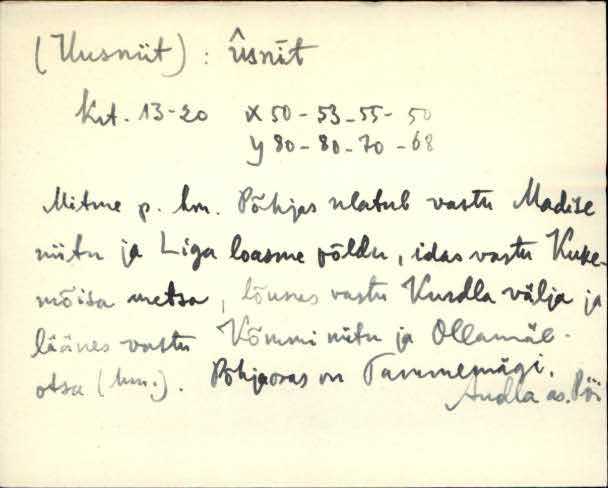 (Uusniit) : Ūsnīt
Krt. 13-20 X 50 - 53 - 55 - 50
Y 80 - 80 - 70 - 68
Mitme p. hm. Põhjas ulatub vastu Madise
niitu ja Liga loasme põldu, idas vastu Kuke-
mõisa metsa, lõunas vastu Kurdla välja ja
läänes vastu Kõmmi niitu ja Ollamäe-
otsa (hm.). Põhjaosas on Tammemägi.
Audla as. Pöi